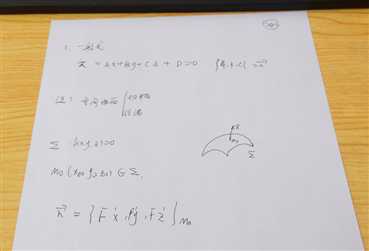 1. 一般式
π = Ax+By+Cz + D=0 {A.B.C} n⃗
注: 空间曲面
Σ F(x,y,z)=0
M₀(x₀, y₀, z₀) ∈ Σ,
n⃗ = {F'x, F'y, F'z}|M₀
n⃗
M₀
Σ